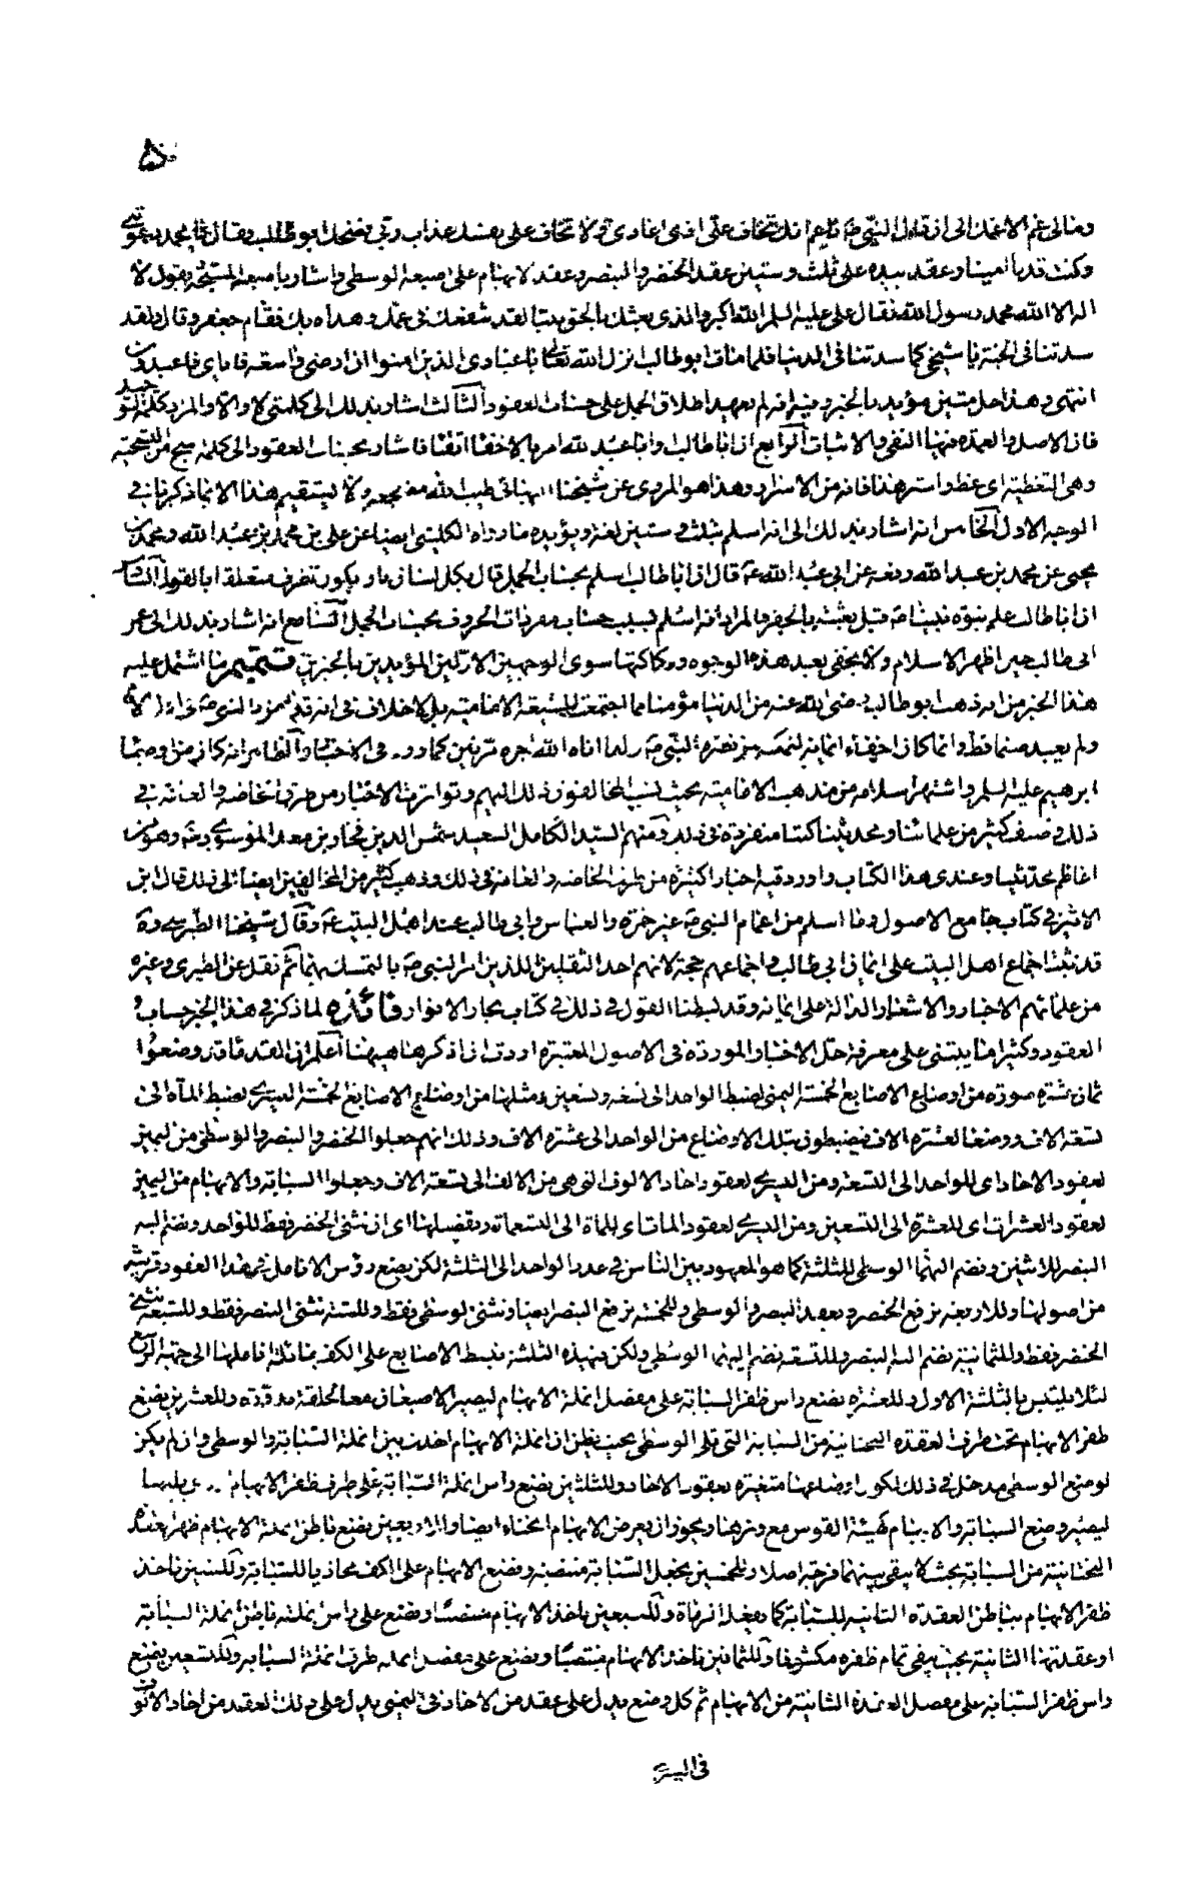 وكنت قدما امينا وعقد بيده على ثلث وستين عقد الخنصر والبنصر وعقد الابهام على اصبعه الوسطى واشار باصبعه المسبحة يقول لا
اله الا الله محمد رسول الله فقال على عليه السلم الله اكبر والذى بعثك بالحق نبيا لقد شفعك فى عمك وهداه بك فقام جعفر وقال لقد
سدتنا فى الجنة يا شيخى كما سدتنا فى الدنيا فلما مات ابو طالب انزل الله تعالى يا عبادى الذين امنوا ان ارضى واسعة فاياى فاعبدون
انتهى وهذا حل متين مؤيد بالخبر وفيه انه لم يعهد اطلاق الجمل على حساب العقود الثالث اشار بذلك الى كلمتى لا والا والمراد كلمة التوحيد
فان الاصل والعمدة فيها النفى والاثبات الرابع ان ابا طالب وابا عبد الله امر بالاخفاء اتقاء فاشار بحساب العقود الى كلمة سبح من التسبيحة
وهى التغطية اى غط واستر هذا فانه من الاسرار وهذا هو المروى عن شيخنا البهائى طيب الله مضجعه ولا يستقيم هذا الا بما ذكرنا فى
الوجه الاول الخامس انه اشار بذلك الى انه اسلم بثلث وستين لغة ويؤيده ما رواه الكلينى ايضا عن على بن محمد بن عبد الله ومحمد بن
يحيى عن محمد بن عبد الله رفعه عن ابى عبد الله ع قال ان ابا طالب اسلم بحساب الجمل قال بكل لسان
ان ابا طالب علم نبوة نبينا ص قبل بعثته بالجفر والمراد انه اسلم بسبب حساب مفردات الحروف بحساب الجمل السابع انه اشار بذلك الى عمر
ابى طالب حين اظهر الاسلام ولا يخفى بعد هذه الوجوه وركاكتها سوى الوجهين الاولين المؤيدين بالخبرين تتميم ما اشتمل عليه
هذا الخبر من انه ذهب ابو طالب رضى الله عنه من الدنيا مؤمنا مما اجتمعت الشيعة الامامية بل لا خلاف فى انه
ولم يعبد صنما قط وانما كان اخفاء ايمانه ليتمكن من نصرة النبى ص ولما اتاه الله اجره مرتين كما ورد فى الاخبار والظاهر انه كان من اوصياء
ابرهيم عليه السلم واشتهر اسلامه من مذهب الامامية بحيث نسب المخالفون ذلك اليهم وتواترت الاخبار من طرق الخاصة والعامة فى
ذلك وصنف كثير من علمائنا ومحدثينا كتبا منفردة فى ذلك ومنهم السيد الكامل السعيد شمس الدين فخار بن معد الموسوى ره وهو من
اعاظم محدثينا وعندى هذا الكتاب واورد فيه اخبارا كثيرة من طريق الخاصة والعامة فى ذلك وذهب كثير من المخالفين ايضا الى ذلك قال ابن
الاثير فى كتاب جامع الاصول وما اسلم من اعمام النبى ص غير حمزة والعباس وابى طالب عند اهل البيت ع وقال شيخنا الطبرسى ره
قد ثبت اجماع اهل البيت على ايمان ابى طالب واجماعهم حجة لانهم احد الثقلين اللذين امر النبى ص بالتمسك بهما ثم نقل عن الطبرى وغيره
من علمائهم الاخبار والاشعار الدالة على ايمانه وقد بسطنا القول فى ذلك فى كتاب بحار الانوار فائدة لما ذكر فى هذا الخبر حساب
العقود وكثيرا ما يبتنى على معرفة حل الاخبار الموردة فى الاصول المعتبرة اردت ان اذكرها هيهنا اعلم ان القدماء قد وضعوا
ثمان عشرة صورة من اوضاع الاصابع الخمسة اليمنى لضبط الواحد الى تسعة وتسعين ومثلها من اوضاع الاصابع الخمسة اليسرى لضبط المائة الى
تسعة الاف ووضعا لعشرة الاف فيضبطون بتلك الاوضاع من الواحد الى عشرة الاف وذلك انهم جعلوا الخنصر والبنصر والوسطى من اليمين
لعقود الاحاد اى للواحد الى التسعة ومن اليسرى لعقود احاد الالوف التى هى من الالف الى تسعة الاف وجعلوا السبابة والابهام من اليمين
لعقود العشرات اى للعشرة الى التسعين ومن اليسرى لعقود المات اى للمائة الى التسعمائة وتفصيلها اى ان تثنى الخنصر فقط للواحد وتضم اليه
البنصر للاثنين وتضم اليهما الوسطى للثلثة كما هو المعهود بين الناس فى عدد الواحد الى الثلثة لكن يضع رؤس الانامل فى هذا العقود قريبة
من اصولها وللاربعة ترفع الخنصر ويعقد البنصر والوسطى وللخمسة ترفع البنصر ايضا وتثنى الوسطى فقط وللستة تثنى البنصر فقط وللسبعة تثنى
الخنصر فقط وللثمانية تضم اليه البنصر وللتسعة تضم اليهما الوسطى ولكن فى هذه الثلثة تبسط الاصابع على الكف مائلة اناملها الى جهة الرسغ
لئلا يلتبس بالثلثة الاول وللعشرة يضع راس ظفر السبابة على مفصل انملة الابهام ليصير الاصبعان معا كحلقة مدورة وللعشرين يضع
ظفر الابهام تحت طرف العقدة التحتانية من السبابة التى تلى الوسطى بحيث يظن ان انملة الابهام اخذت بين انملة السبابة والوسطى وان لم يكن
لوضع الوسطى مدخل فى ذلك لكون اوضاعها متغيرة بعقود الاحاد وللثلثين يضع راس انملة السبابة على طرف ظفر الابهام
ليصير وضع السبابة والابهام كهيئة القوس مع وترها ويجوز ان يعرض الابهام انحناء ايضا وللاربعين يضع باطن انملة الابهام ظهر العقدة
التحتانية من السبابة بحيث لا يبقى بينهما فرجة اصلا وللخمسين يجعل السبابة منتصبة ويضع الابهام على الكف محاذيا للسبابة وللستين ياخذ
ظفر الابهام بباطن العقدة الثانية للسبابة كما يفعله الرماة وللسبعين ياخذ الابهام منتصبا ويضع على راس انملته باطن انملة السبابة
او عقدتها الثانية بحيث يبقى تمام ظفره مكشوفا وللثمانين ياخذ الابهام منتصبا ويضع على مفصل انملته طرف انملة السبابة وللتسعين يضع
راس ظفر السبابة على مفصل العقدة الثانية من الابهام ثم كل وضع يدل على عقد من الاحاد فى اليمنى يدل على ذلك العقد من احاد الالوف
فى اليسرى